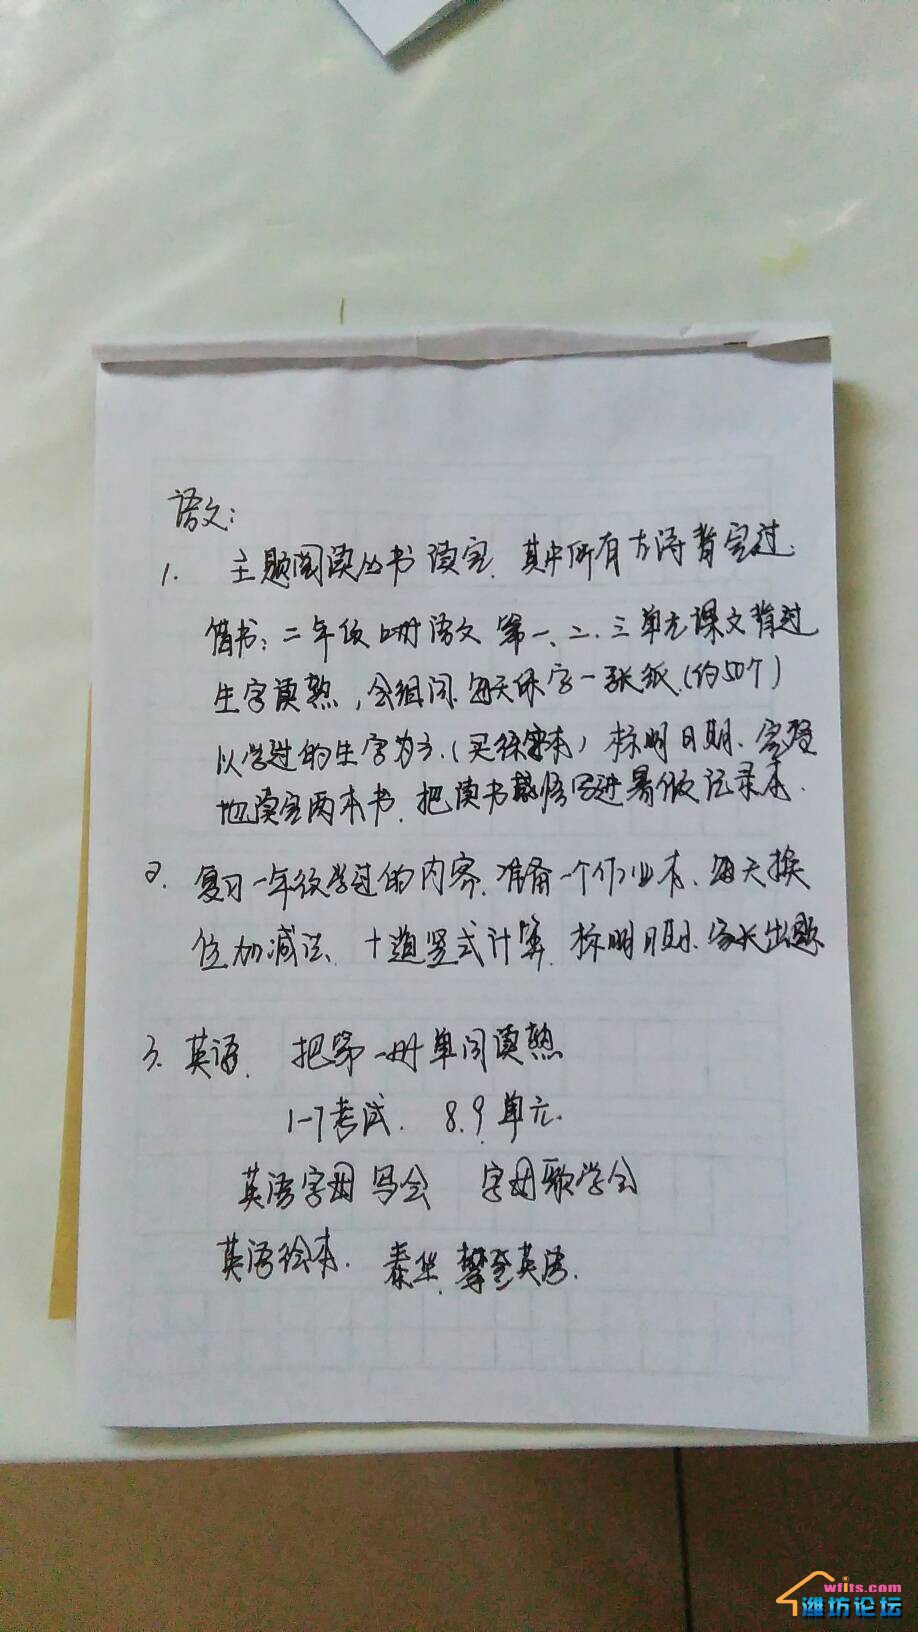 语文:
1. 主题阅读丛书读完.其中所有古诗背完过.
借书:二年级上册语文第一、二.三单元课文背过
生字读熟,会组词.每天练字一张纸.(约50个)
以学过的生字为主.(买练字本)标明日期.完整
地读完两本书.把读书感悟写进暑假记录本.
2. 复习一年级学过的内容.准备一个作业本.每天换
位加减法.十道竖式计算.标明日期.家长出题
3. 英语.把第一册单词读熟
1-7考试. 8.9.单元.
英语字母写会 字母歌学会
英语绘本. 泰华.攀登英语.
wfits.com
潍坊论坛